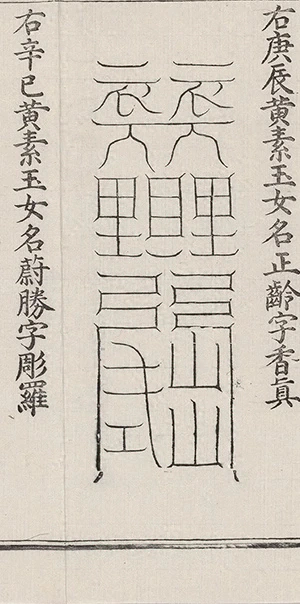 右庚辰黃素玉女名正齡字香眞
右辛巳黃素玉女名蔚勝字彫羅